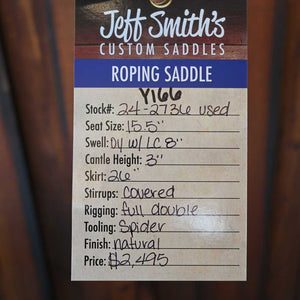 Jeff Smith's
CUSTOM SADDLES
ROPING SADDLE
Y166
Stock#: 24-2736 used
Seat Size: 15.5"
Swell: 04 w/ LC 8"
Cantle Height: 3"
Skirt: 26"
Stirrups: covered
Rigging: full double
Tooling: Spider
Finish: natural
Price: $2,495